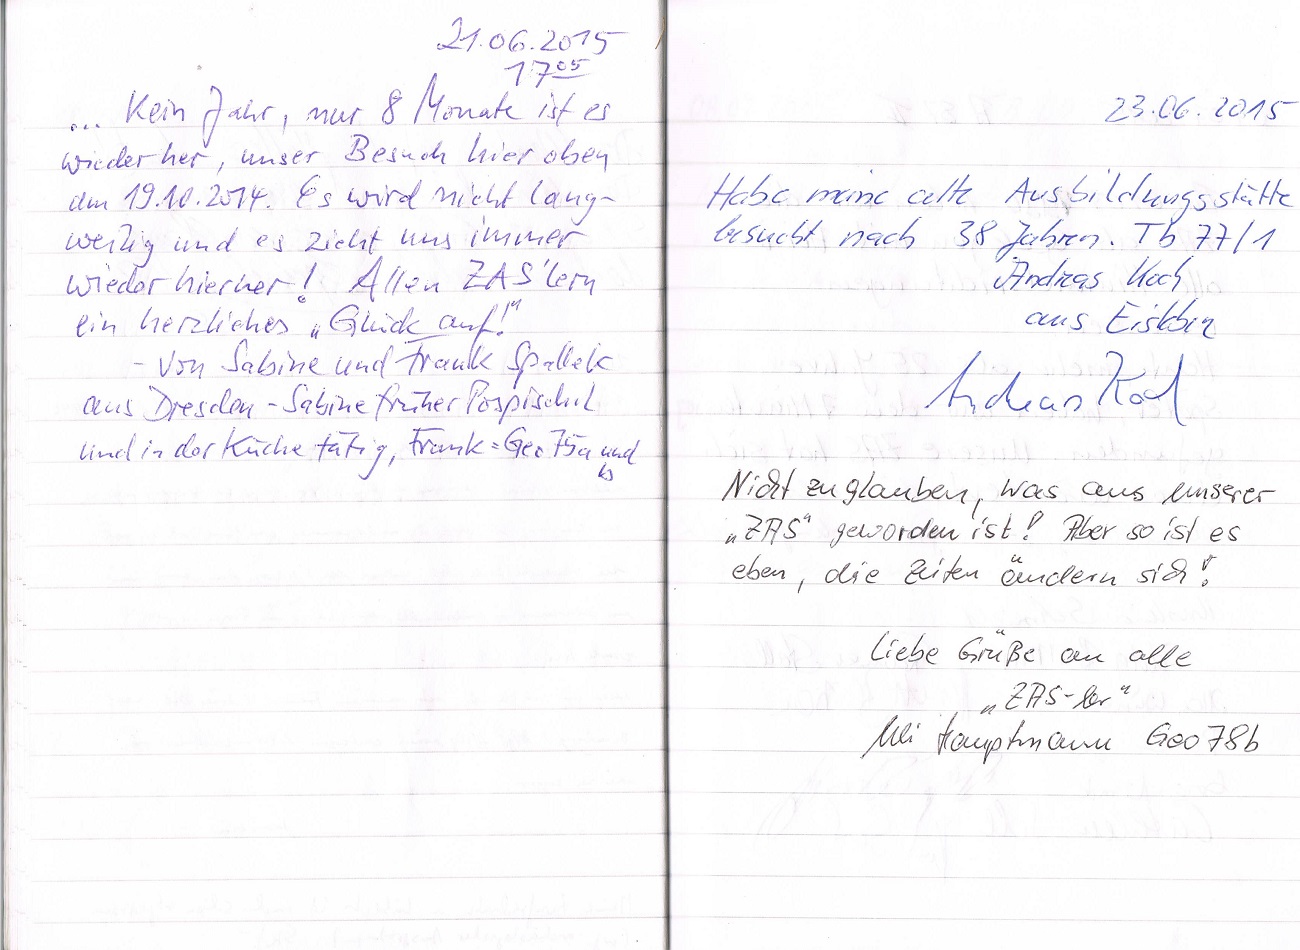 21.06.2015
17 05
... Kein Jahr, nur 8 Monate ist es
wieder her, unser Besuch hier oben
am 19.10.2014. Es wird nicht lang-
weilig und es zieht uns immer
wieder hierher! Allen ZAS'lern
ein herzliches „Glück auf!"
- Von Sabine und Frank Spallek
aus Dresden - Sabine früher Pospischil
und in der Küche tätig, Frank = Geo 75a und
b
23.06.2015
Habe meine alte Ausbildungsstätte
besucht nach 38 Jahren. Tb 77/1
Andreas Koch
aus Eisleben
Andreas Koch
Nicht zu glauben, was aus unserer
„ZAS" geworden ist! Aber so ist es
eben, die Zeiten ändern sich!
Liebe Grüße an alle
„ZAS-ler"
Uli Hauptmann Geo 78b